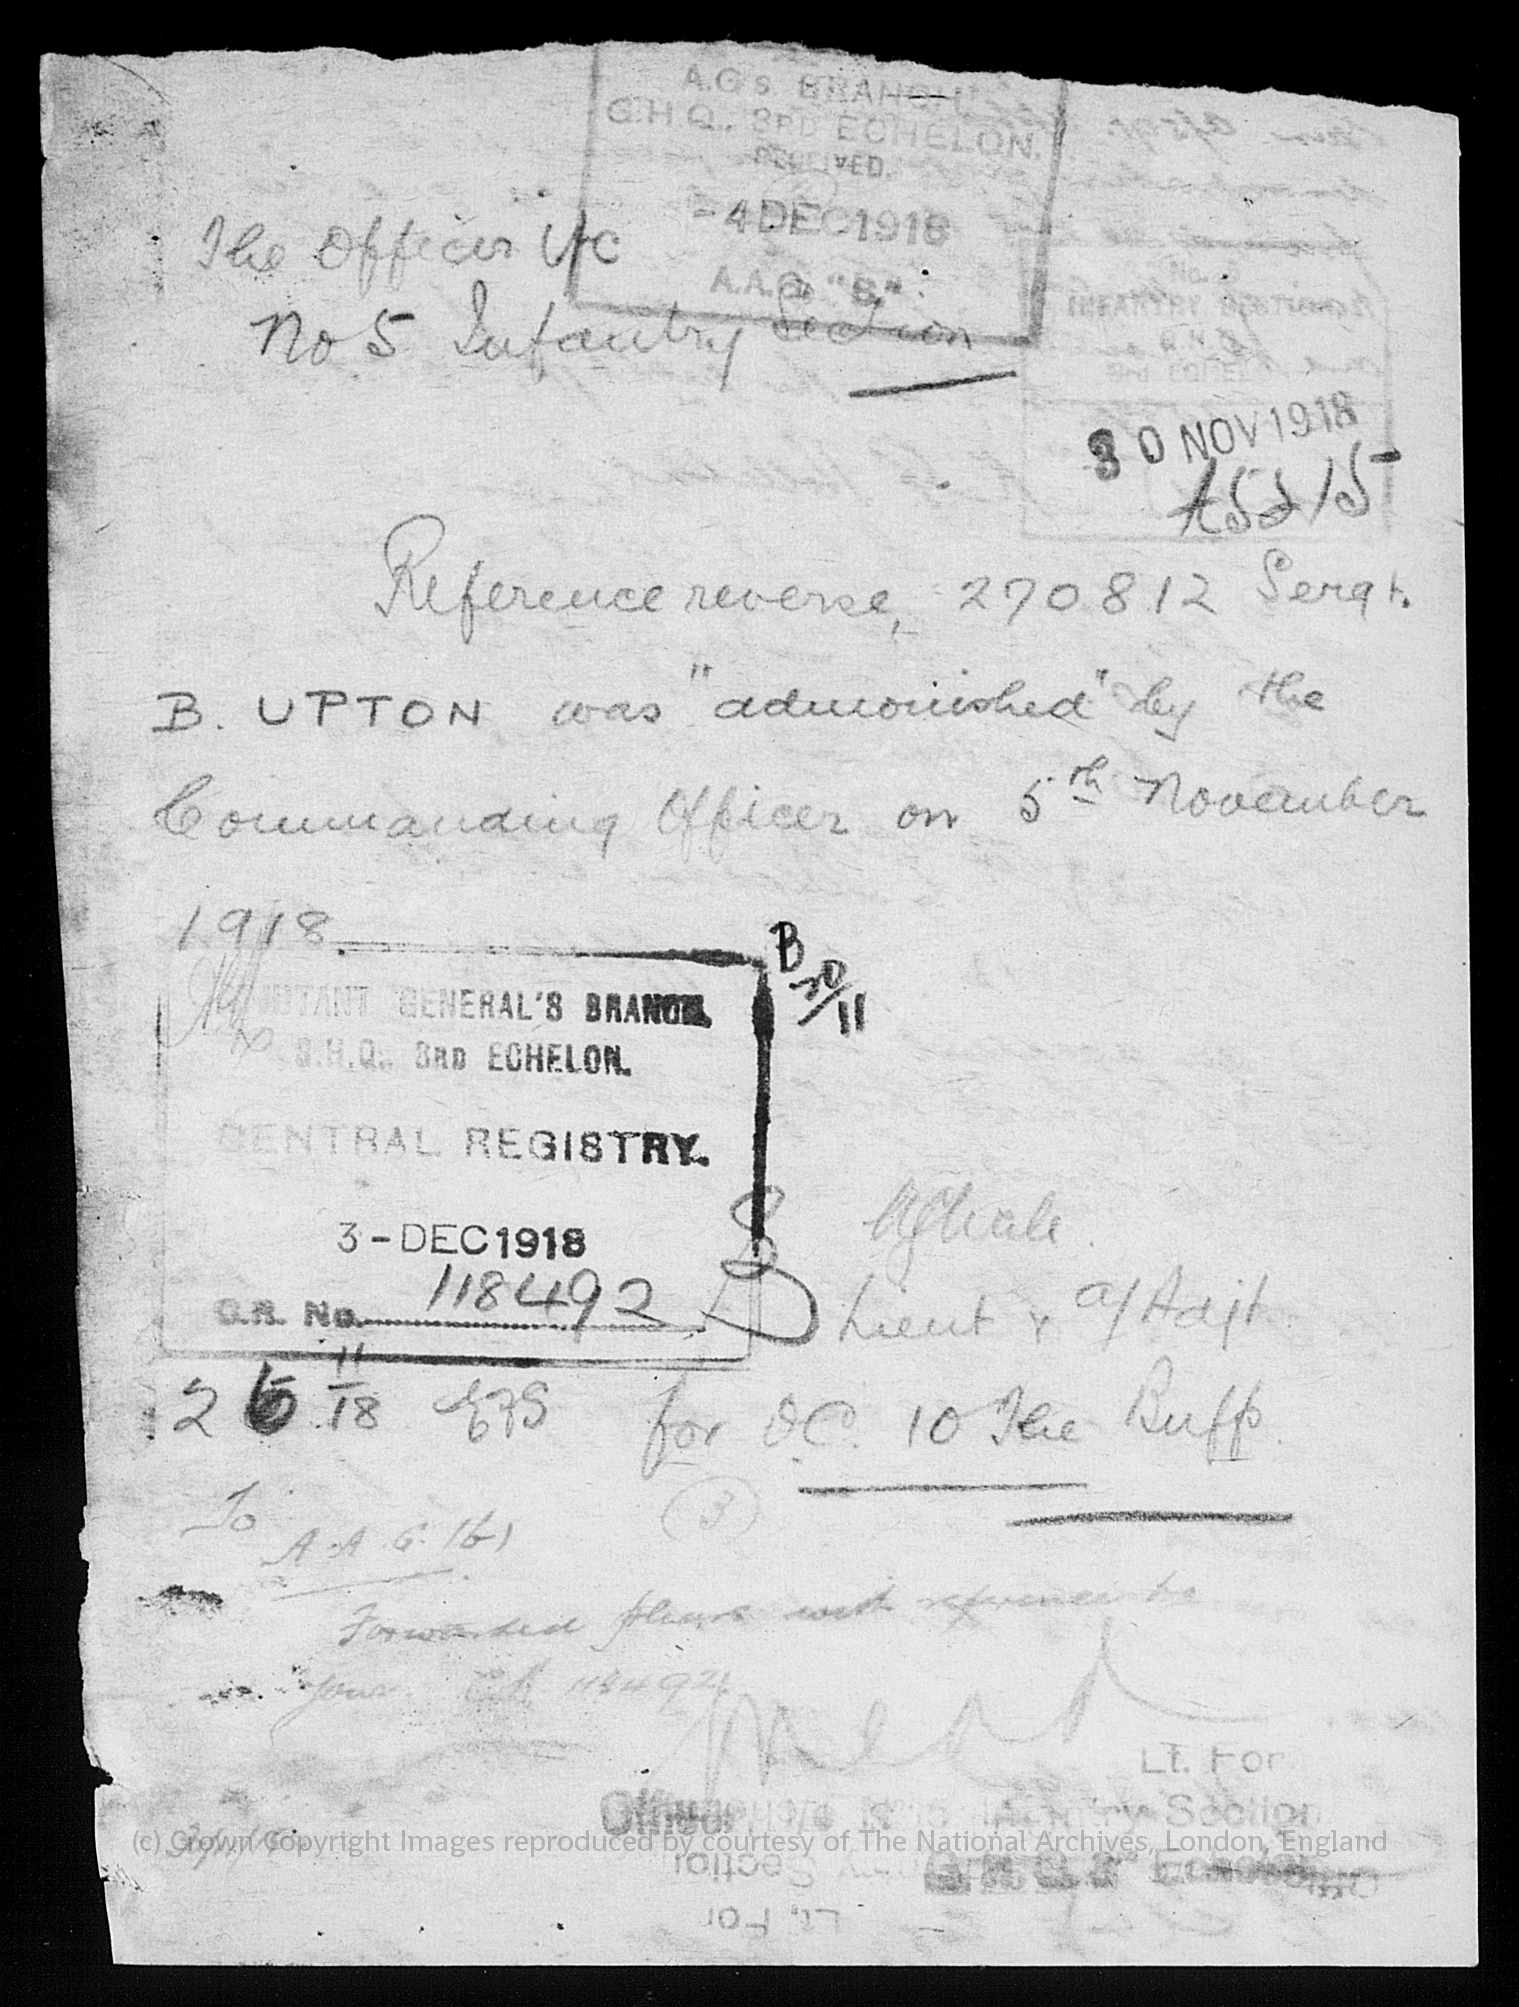 A.G's. BRANCH
G.H.Q., 3RD ECHELON.
RECEIVED.
-4 DEC 1918
A.A.G. "B."
The Officer i/c
No 5 Infantry Section
INFANTRY SECTION
30 NOV 1918
Reference reverse, 270812 Sergt.
B. UPTON was "admonished" by the
Commanding Officer on 5th November
1918.
B 30/11
ADJUTANT GENERAL'S BRANCH.
G.H.Q., 3RD ECHELON.
CENTRAL REGISTRY.
3-DEC 1918
C.R. No. 118492
Lieut & a/Adjt.
26 11/18 for O.C. 10 The Buffs.
(3)
To
A.A.G. (b)
Forwarded please with reference to
your C.R. 118492
Lt. For
Officer i/c No. Infantry Section
(c) Crown Copyright Images reproduced by courtesy of The National Archives, London, England